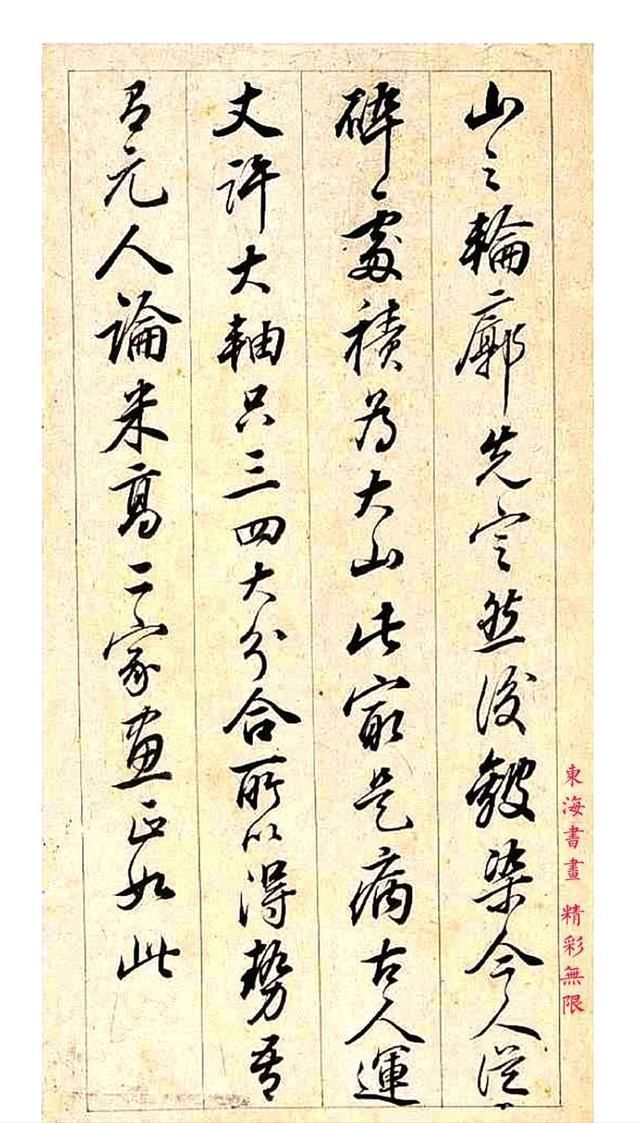 山之輪廓先定然後皴染今人從
碎處積為大山此最是病古人運
丈許大軸只三四大分合所以得勢吾
元人論米高二家畫正如此
東海書畫 精彩無限